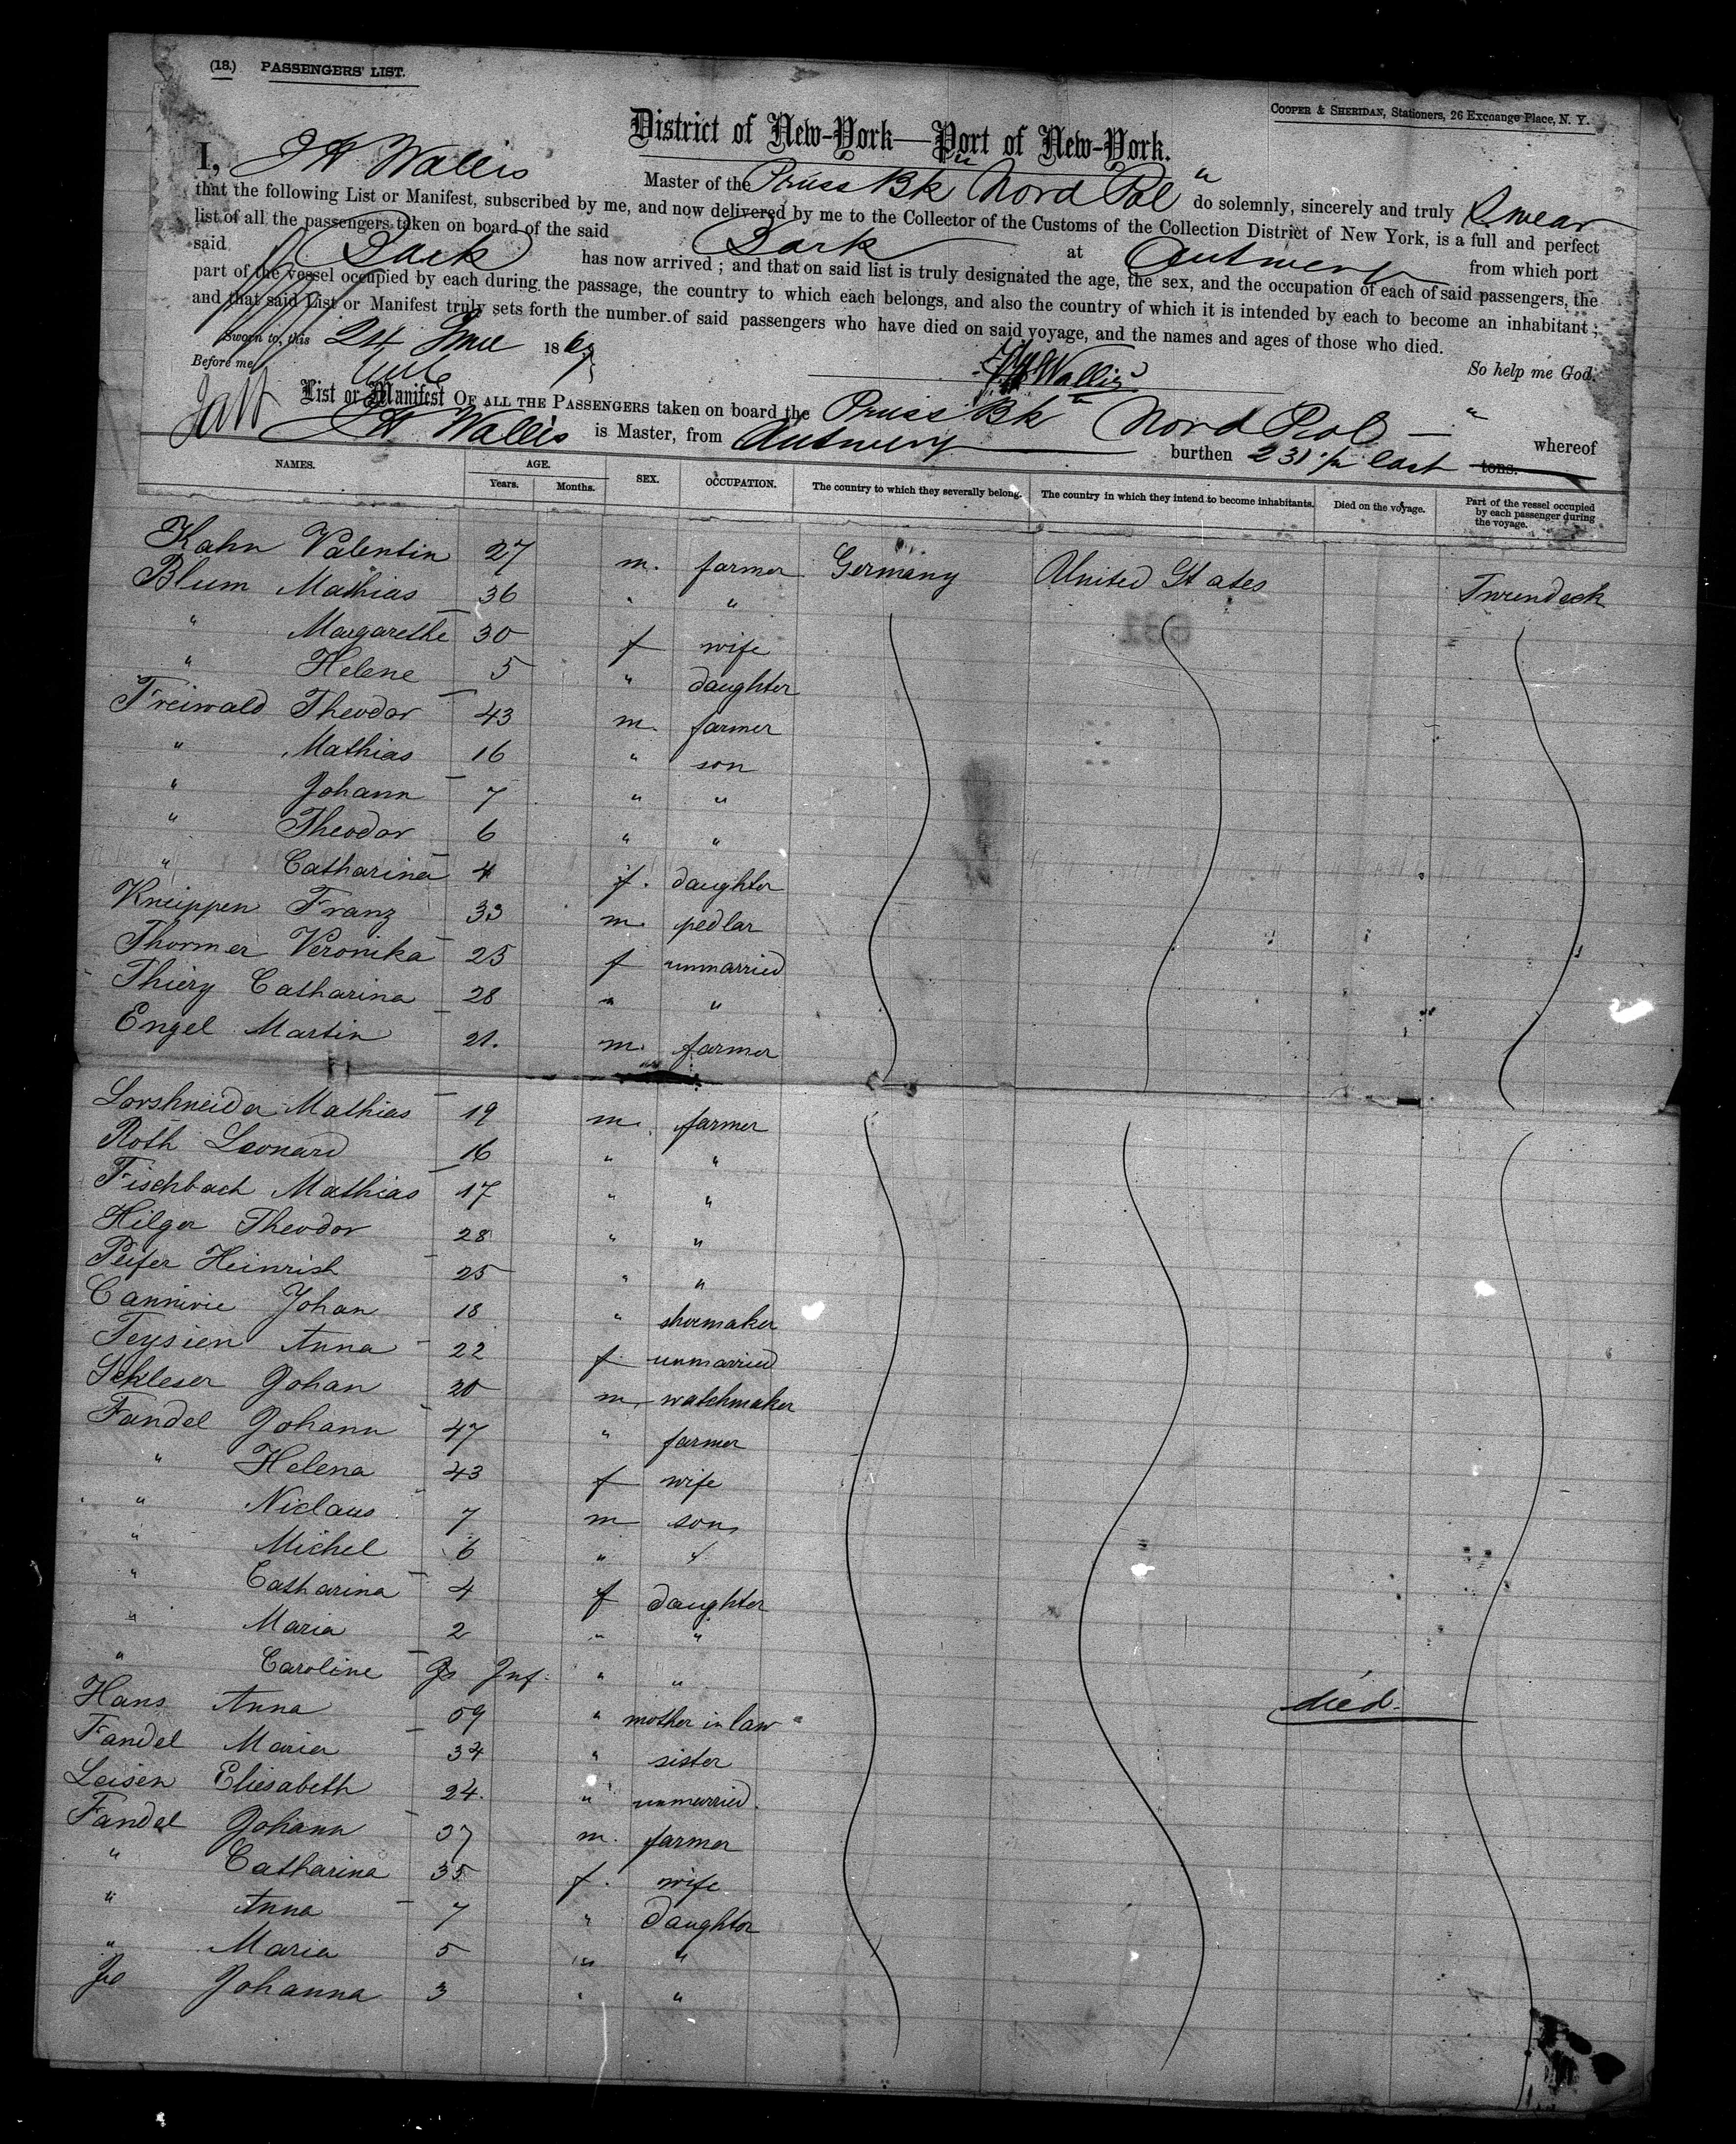 (18.) PASSENGERS' LIST.
COOPER & SHERIDAN, Stationers, 26 Exchange Place, N. Y.
District of New-York—Port of New-York.
I, J H Wallis Master of the Pruss Bk "Nord Pol" do solemnly, sincerely and truly Swear
that the following List or Manifest, subscribed by me, and now delivered by me to the Collector of the Customs of the Collection District of New York, is a full and perfect
list of all the passengers taken on board of the said Bark at Antwerp from which port
said Bark has now arrived; and that on said list is truly designated the age, the sex, and the occupation of each of said passengers, the
part of the vessel occupied by each during the passage, the country to which each belongs, and also the country of which it is intended by each to become an inhabitant;
and that said List or Manifest truly sets forth the number of said passengers who have died on said voyage, and the names and ages of those who died.
Sworn to, this 24 June 186 So help me God.
Before me J H Wallis
List or Manifest OF ALL THE PASSENGERS taken on board the Pruss Bk "Nord Pol" whereof
J H Wallis is Master, from Antwerp burthen 231 1/2 last tons.
NAMES. AGE. Years. Months. SEX. OCCUPATION. The country to which they severally belong. The country in which they intend to become inhabitants. Died on the voyage. Part of the vessel occupied by each passenger during the voyage.
Kahn Valentin 27 m. farmer Germany United States Twendeck
Blum Mathias 36 " "
" Margarethe 30 f wife
" Helene 5 " daughter
Freiwald Theodor 43 m. farmer
" Mathias 16 " son
" Johann 7 " "
" Theodor 6 " "
" Catharina 4 f. daughter
Kneippen Franz 33 m. pedlar
Thormer Veronika 25 f unmarried
Thiery Catharina 28 " "
Engel Martin 21. m. farmer
Lorshneider Mathias 19 m. farmer
Roth Leonard 16 " "
Fischbach Mathias 17 " "
Hilger Theodor 28 " "
Peifer Heinrich 25 " "
Cannivie Johan 18 " shoemaker
Teysien Anna 22 f unmarried
Schleser Johan 20 m. watchmaker
Fandel Johann 47 " farmer
" Helena 43 f wife
" Niclaus 7 m son
" Michel 6 " "
" Catharina 4 f daughter
" Maria 2 " "
" Caroline Inf. " "
Hans Anna 59 " mother in law died.
Fandel Maria 34 " sister
Leisen Eliesabeth 24. " unmarried.
Fandel Johann 37 m. farmer
" Catharina 35 f. wife
" Anna 7 " daughter
" Maria 5 " "
Johanna 3 " "